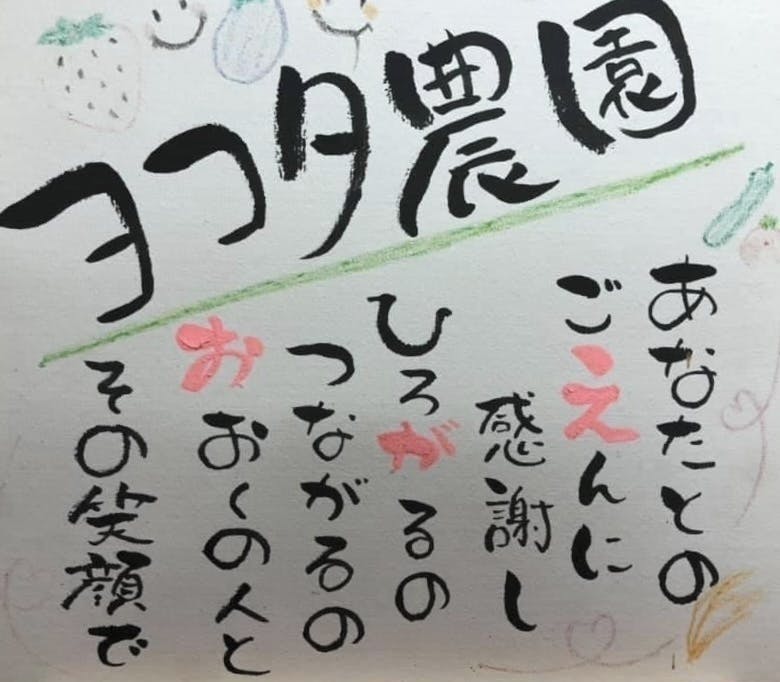 ヨコタ農園
あなたとの
ごえんに
感謝し
ひろがるの
つながるの
おおくの人と
その笑顔で